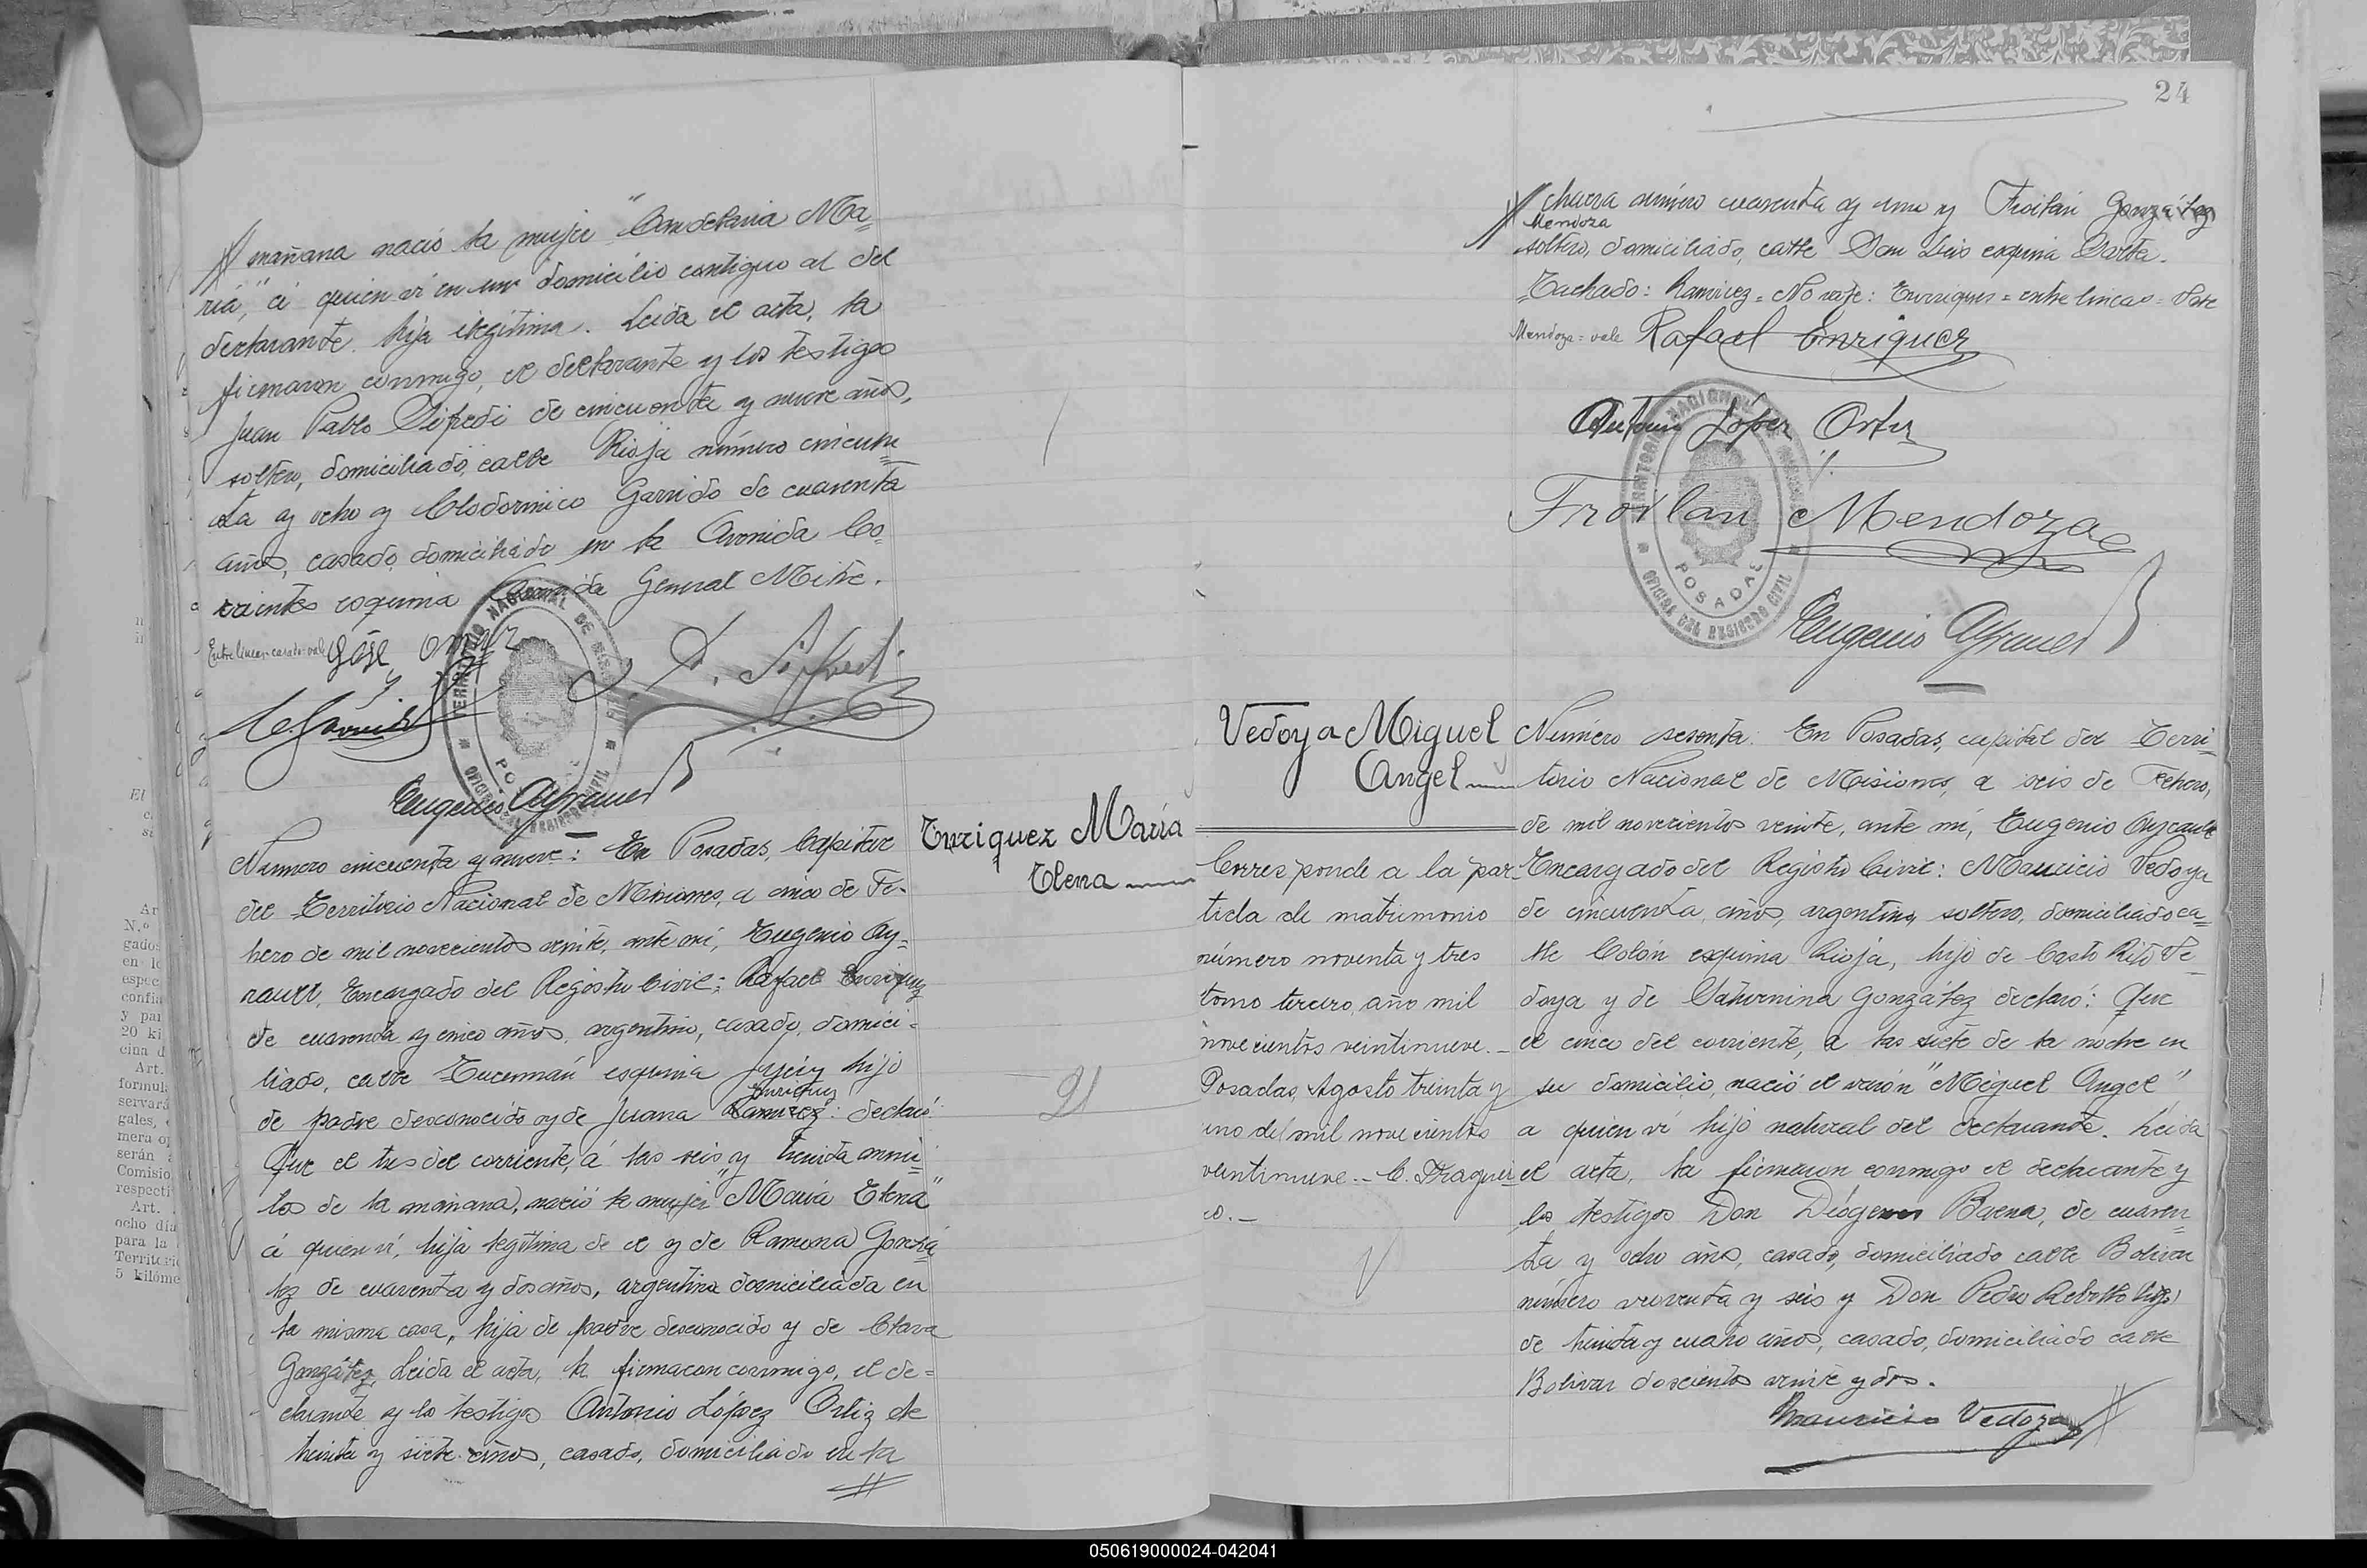 mañana nació la mujer "Candelaria Ma-
ria," á quien vi en un domicilio contiguo al del
declarante. hija ilegitima. Leida el acta, la
firmaron conmigo, el declarante y los testigos
Juan Pablo Sifredi de cincuenta y nueve años,
soltero, domiciliado, calle Rioja número cincuen-
ta y ocho y Clodormico Garrido de cuarenta
años, casado, domiciliado en la Avenida Co-
rrientes esquina Avenida General Mitre.
Entre lineas casado vale José
TERRITORIO NACIONAL DE MISIONES
OFICINA DEL REGISTRO CIVIL
POSADAS
Numero cincuenta y nueve: En Posadas, Capital
del Territorio Nacional de Misiones, a cinco de Fe-
brero de mil novecientos veinte, ante mi, Eugenio Ay-
rault, Encargado del Registro Civil; Rafael Enriquez
de cuarenta y cinco años, argentino, casado, domici-
liado, calle Tucumán esquina Jujuy hijo
Enriquez
de padre desconocido y de Juana Ramirez: declaró:
Que el tres del corriente, á las seis y treinta minu-
tos de la mañana, nació la mujer "María Elena"
á quien vi, hija legítima de el y de Ramona Gonzá-
lez de cuarenta y dos años, argentina domiciliada en
la misma casa, hija de padre desconocido y de Clara
González. Leida el acta, la firmaron conmigo, el de-
clarante y los testigos Antonio López Ortiz de
treinta y siete años, casado, domiciliado en la
Enriquez María
Elena
24
chacra número cuarenta y uno y Froilán González
Mendoza
soltero, domiciliado, calle San Luis esquina Salta.
Tachado: Ramirez = No vale: Enriquez = entre lineas = Vale
Mendoza = vale Rafael Enriquez
Antonio López Ortiz
Froilan Mendoza
TERRITORIO NACIONAL DE MISIONES
OFICINA DEL REGISTRO CIVIL
POSADAS
Vedoya Miguel
Angel
Corresponde a la par-
tida de matrimonio
número noventa y tres
tomo tercero, año mil
novecientos veintinueve.-
Posadas, Agosto treinta y
uno del mil novecientos
veintinueve.-
Número sesenta: En Posadas, capital del Terri-
torio Nacional de Misiones, a seis de Febrero,
de mil novecientos veinte, ante mí, Eugenio Ayrault
Encargado del Registro Civil: Mauricio Vedoya
de cincuenta años, argentino, soltero, domiciliado ca-
lle Colón esquina Rioja, hijo de Casto Rito Ve-
doya y de Saturnina González declaró: Que
el cinco del corriente, a las siete de la noche en
su domicilio, nació el varón "Miguel Angel"
a quien ví hijo natural del declarante. Leida
el acta, la firmaron conmigo el declarante y
los testigos Don Diógenes Baena, de cuaren-
ta y ocho años, casado, domiciliado calle Bolivar
número noventa y seis y Don Pedro Rebollo (hijo)
de treinta y cuatro años, casado, domiciliado calle
Bolivar doscientos veinte y dos.
Mauricio Vedoya
050619000024-042041